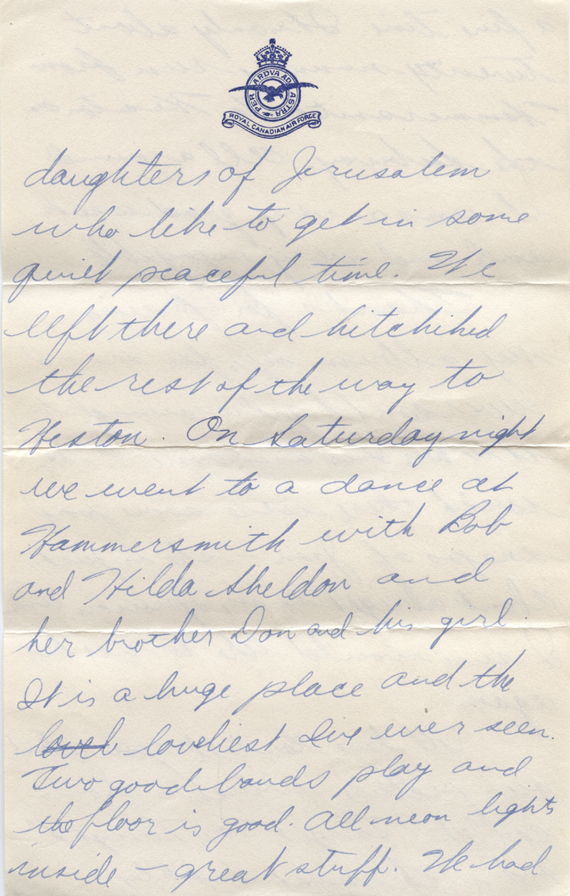 PER ARDVA AD ASTRA
ROYAL CANADIAN AIR FORCE
daughters of Jerusalem
who like to get in some
quiet peaceful time. We
left there and hitchiked
the rest of the way to
Heston. On Saturday night
we went to a dance at
Hammersmith with Bob
and Hilda Sheldon and
her brother Don and his girl.
It is a huge place and the
lovel loveliest I've ever seen.
Two good bands play and
the floor is good. All neon lights
inside – great stuff. We had